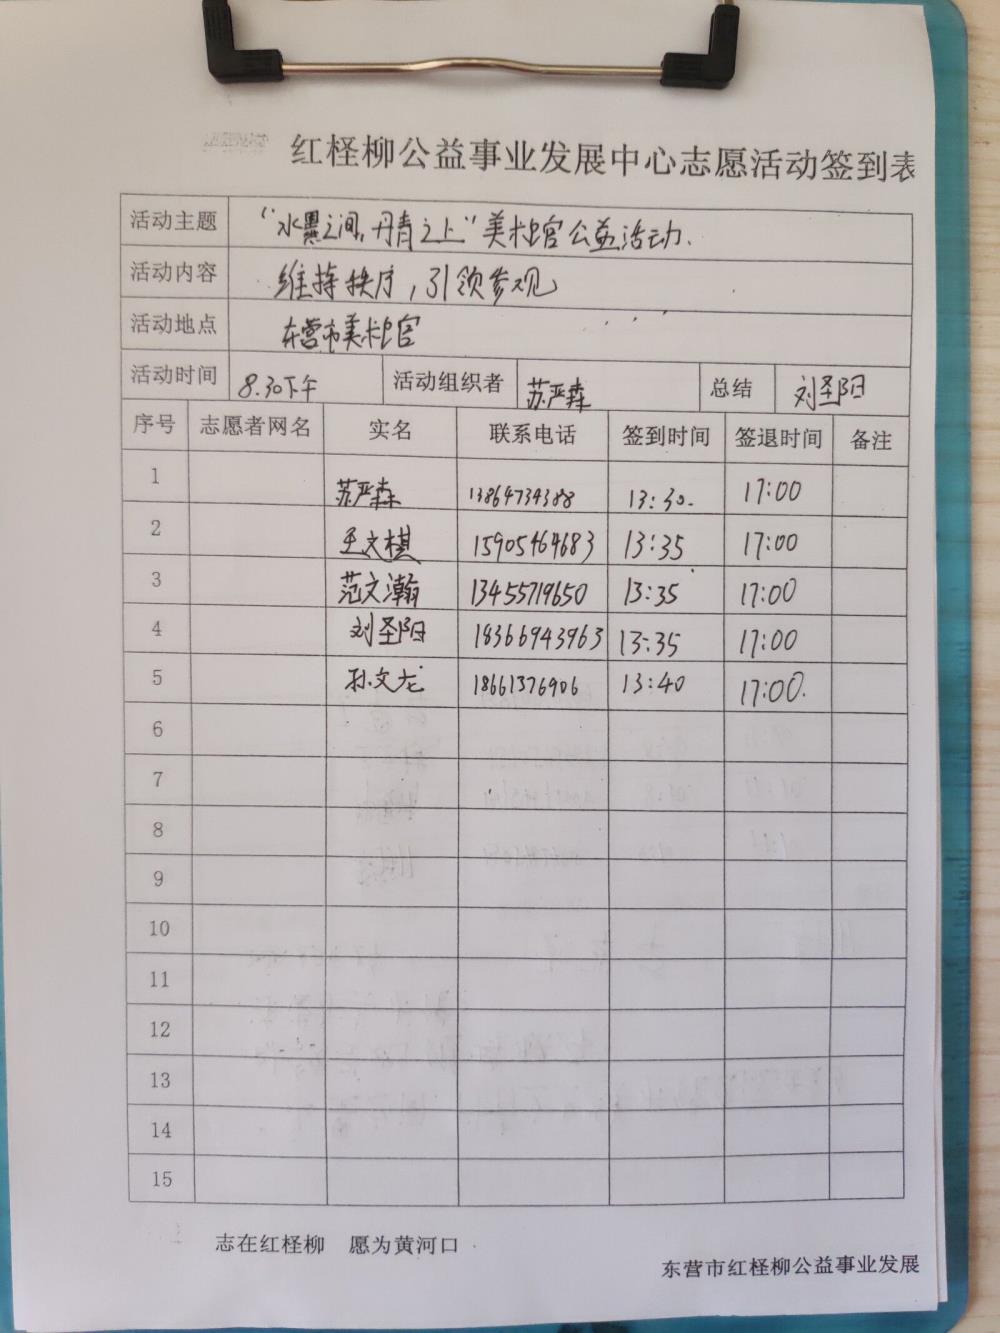 红柽柳公益事业发展中心志愿活动签到表
活动主题 “水墨之间,丹青之上”美术馆公益活动.
活动内容 维持秩序,引领参观
活动地点 东营市美术馆
活动时间 8.30下午 活动组织者 苏严森 总结 刘圣阳
序号 志愿者网名 实名 联系电话 签到时间 签退时间 备注
1 苏严森 13864734388 13:30. 17:00
2 王文棋 15905464683 13:35 17:00
3 范文瀚 13455719650 13:35 17:00
4 刘圣阳 18366943963 13:35 17:00
5 孙文龙 18661376906 13:40 17:00.
6
7
8
9
10
11
12
13
14
15
志在红柽柳 愿为黄河口
东营市红柽柳公益事业发展